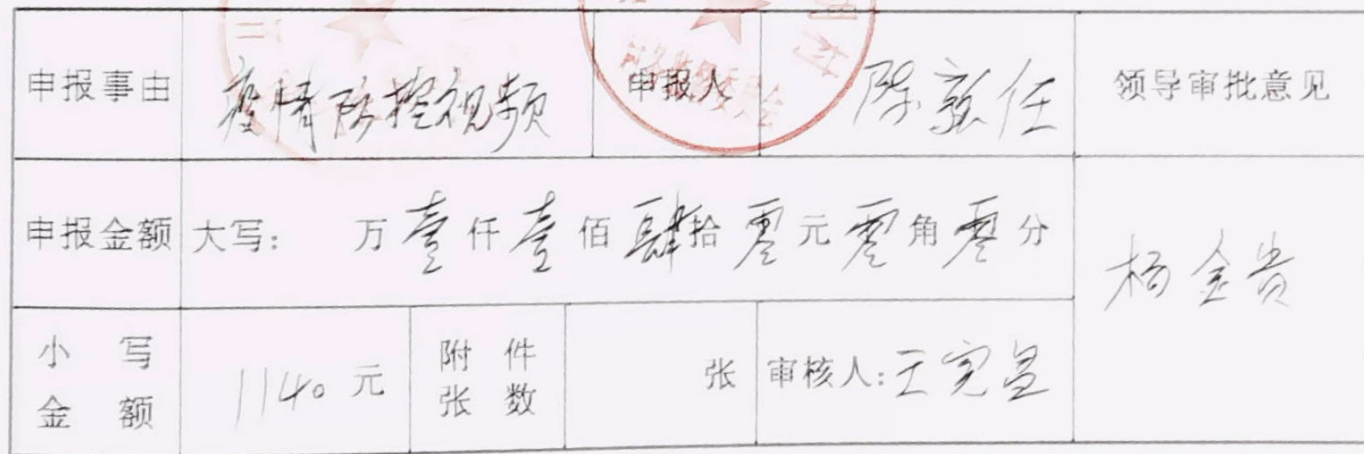 申报事由 疫情防控视频 申报人 陈 任 领导审批意见
申报金额 大写: 万壹仟壹佰肆拾零元零角零分
杨金贵
小写金额 1140元 附件张数 张 审核人:王